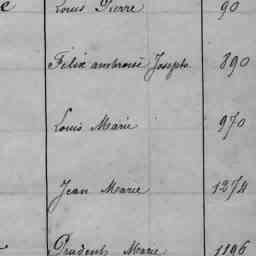 Louis Pierre 90
Félix ambroise Joseph 890
Louis Marie 970
Jean Marie 1274
Prudent Marie 1196